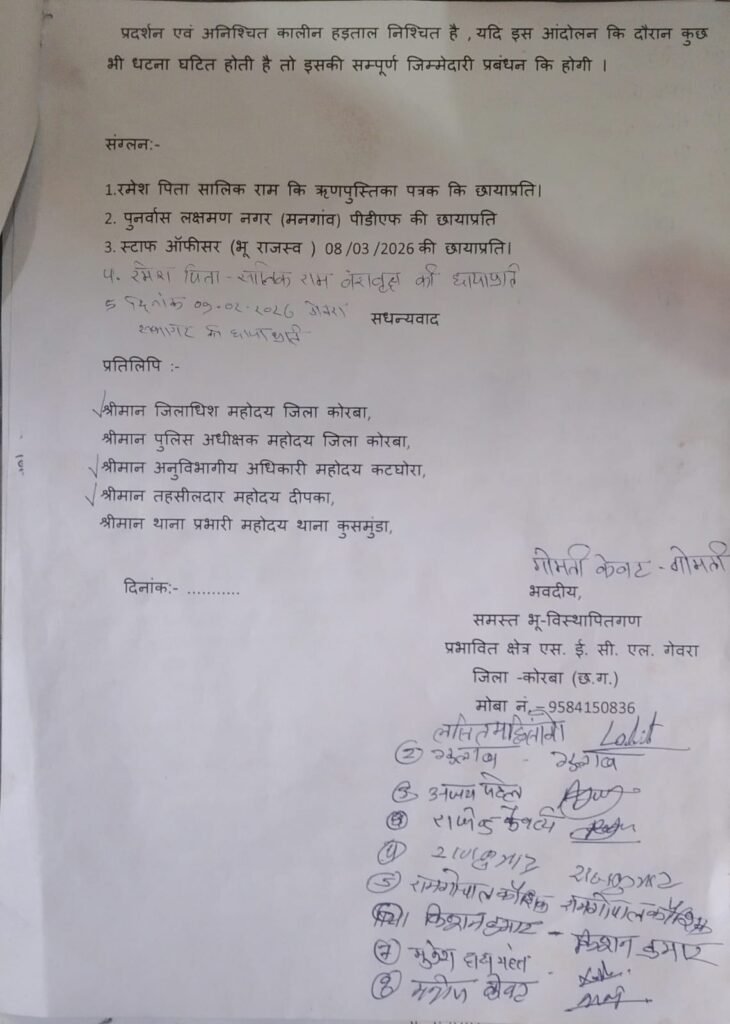 प्रदर्शन एवं अनिश्चित कालीन हड़ताल निश्चित है , यदि इस आंदोलन कि दौरान कुछ
भी धटना घटित होती है तो इसकी सम्पूर्ण जिम्मेदारी प्रबंधन कि होगी ।
संग्लन:-
1.रमेश पिता सालिक राम कि ऋणपुस्तिका पत्रक कि छायाप्रति।
2. पुनर्वास लक्षमण नगर (मनगांव) पीडीएफ की छायाप्रति
3. स्टाफ ऑफीसर (भू राजस्व ) 08 /03 /2026 की छायाप्रति।
4. रमेश पिता - सालिक राम की छायाप्रति
5 दिनांक
की छायाप्रति
सधन्यवाद
प्रतिलिपि :-
श्रीमान जिलाधिश महोदय जिला कोरबा,
श्रीमान पुलिस अधीक्षक महोदय जिला कोरबा,
श्रीमान अनुविभागीय अधिकारी महोदय कटघोरा,
श्रीमान तहसीलदार महोदय दीपका,
श्रीमान थाना प्रभारी महोदय थाना कुसमुंडा,
दिनांक:- ...........
गोमती केवट - गोमती
भवदीय,
समस्त भू-विस्थापितगण
प्रभावित क्षेत्र एस. ई. सी. एल. गेवरा
जिला -कोरबा (छ.ग.)
मोबा नं.=9584150836
Lalit
② गुलाब - गुलाब
③ अजय पटेल
④ राजकुमार राजकुमार
⑤ रामगोपाल कौशिक रामगोपाल कौशिक
किशन कुमार - किशन कुमार
⑦ मुकेश दास महंत
⑧ मनोज केवट